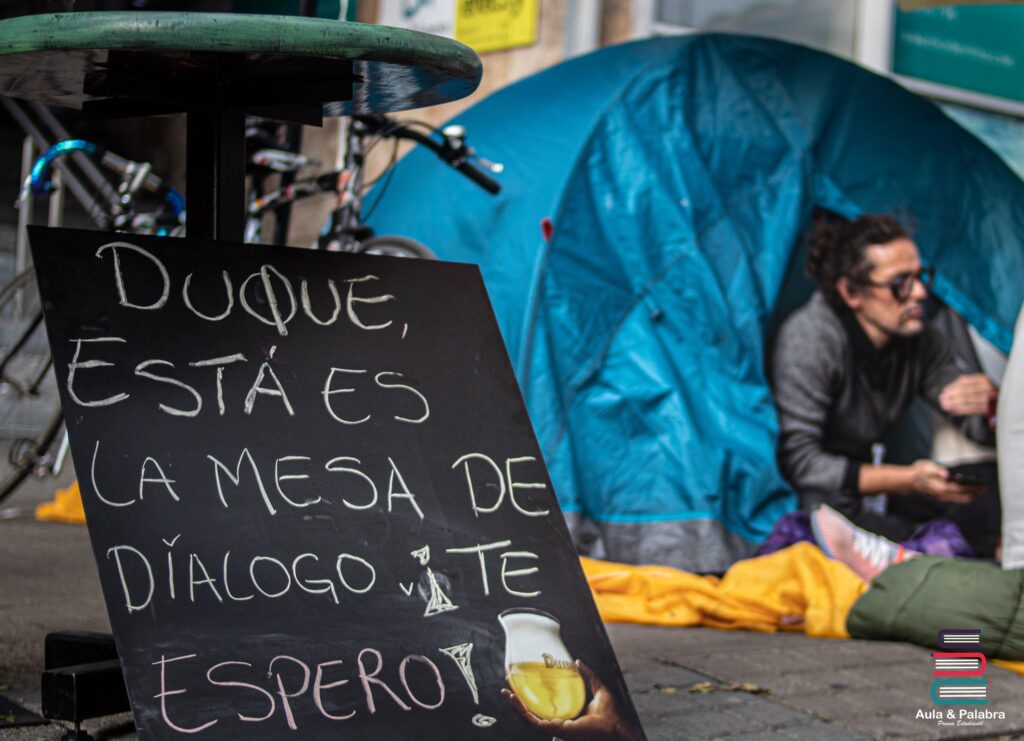 DUQUE,
ESTÁ ES
LA MESA DE
DÍALOGO ¡TE
ESPERO!
Duvel
Aula & Palabra
Prensa Estudiantil